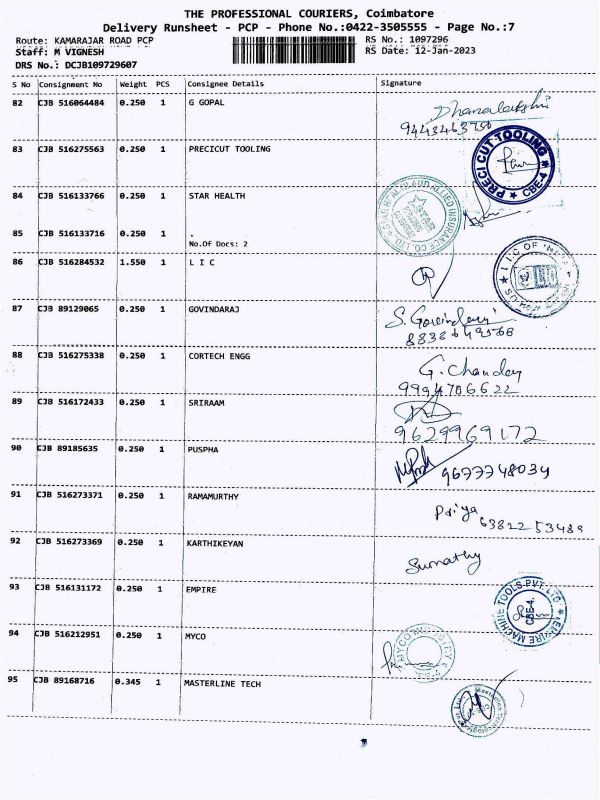 THE PROFESSIONAL COURIERS, Coimbatore
Delivery Runsheet - PCP - Phone No.:0422-3505555 - Page No.:7
Route: KAMARAJAR ROAD PCP RS No.: 1097296
Staff: M VIGNESH RS Date: 12-Jan-2023
DRS No.: DCJB109729607
S No Consignment No Weight PCS Consignee Details Signature
82 CJB 516064484 0.250 1 G GOPAL
Dhanalakshi
83 CJB 516275563 0.250 1 PRECICUT TOOLING
PRECI CUT TOOLING
CBE-4
84 CJB 516133766 0.250 1 STAR HEALTH
STAR HEALTH AND ALLIED INSURANCE CO. LTD
85 CJB 516133716 0.250 1 .
No.Of Docs: 2
86 CJB 516284532 1.550 1 L I C
L.I.C OF
87 CJB 89129065 0.250 1 GOVINDARAJ
S. Govindaraj
88 CJB 516275338 0.250 1 CORTECH ENGG
G. Chandey
9994706622
89 CJB 516172433 0.250 1 SRIRAAM
9629969172
90 CJB 89185635 0.250 1 PUSPHA
9677748034
91 CJB 516273371 0.250 1 RAMAMURTHY
Priya
63822 53489
92 CJB 516273369 0.250 1 KARTHIKEYAN
Sumathy
93 CJB 516131172 0.250 1 EMPIRE
EMPIRE MACHINE TOOLS PVT. LTD
CBE-4.
94 CJB 516212951 0.250 1 MYCO
MYCO INDUSTRIES
95 CJB 89168716 0.345 1 MASTERLINE TECH